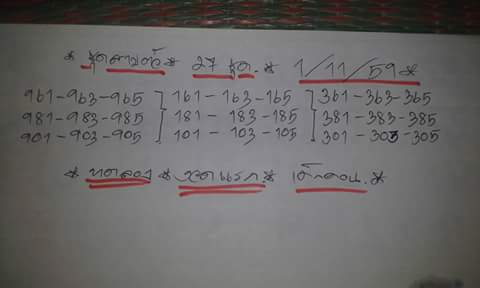 * ชุดสามตัว * 27 ชุด. * 1/11/59 *
961-963-965 ] 161-163-165 ] 361-363-365
981-983-985 ] 181-183-185 ] 381-383-385
901-903-905 ] 101-103-105 ] 301-303-305
* ทดลอง * งวดแรก. * *